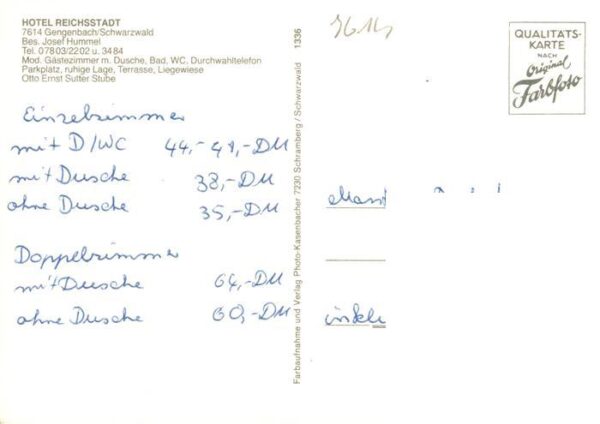 HOTEL REICHSSTADT
7614 Gengenbach/Schwarzwald
Bes. Josef Hummel
Tel. 07803/2202 u. 3484
Mod. Gästezimmer m. Dusche, Bad, WC, Durchwahltelefon
Parkplatz, ruhige Lage, Terrasse, Liegewiese
Otto Ernst Sutter Stube
Einzelzimmer
mit D/WC 44,- 49,-DM
mit Dusche 38,-DM
ohne Dusche 35,-DM
Doppelzimmer
mit Dusche 64,-DM
ohne Dusche 60,-DM
Farbaufnahme und Verlag Photo-Kasenbacher 7230 Schramberg/Schwarzwald 1336
QUALITÄTS-
KARTE
NACH
Original
Farbfoto